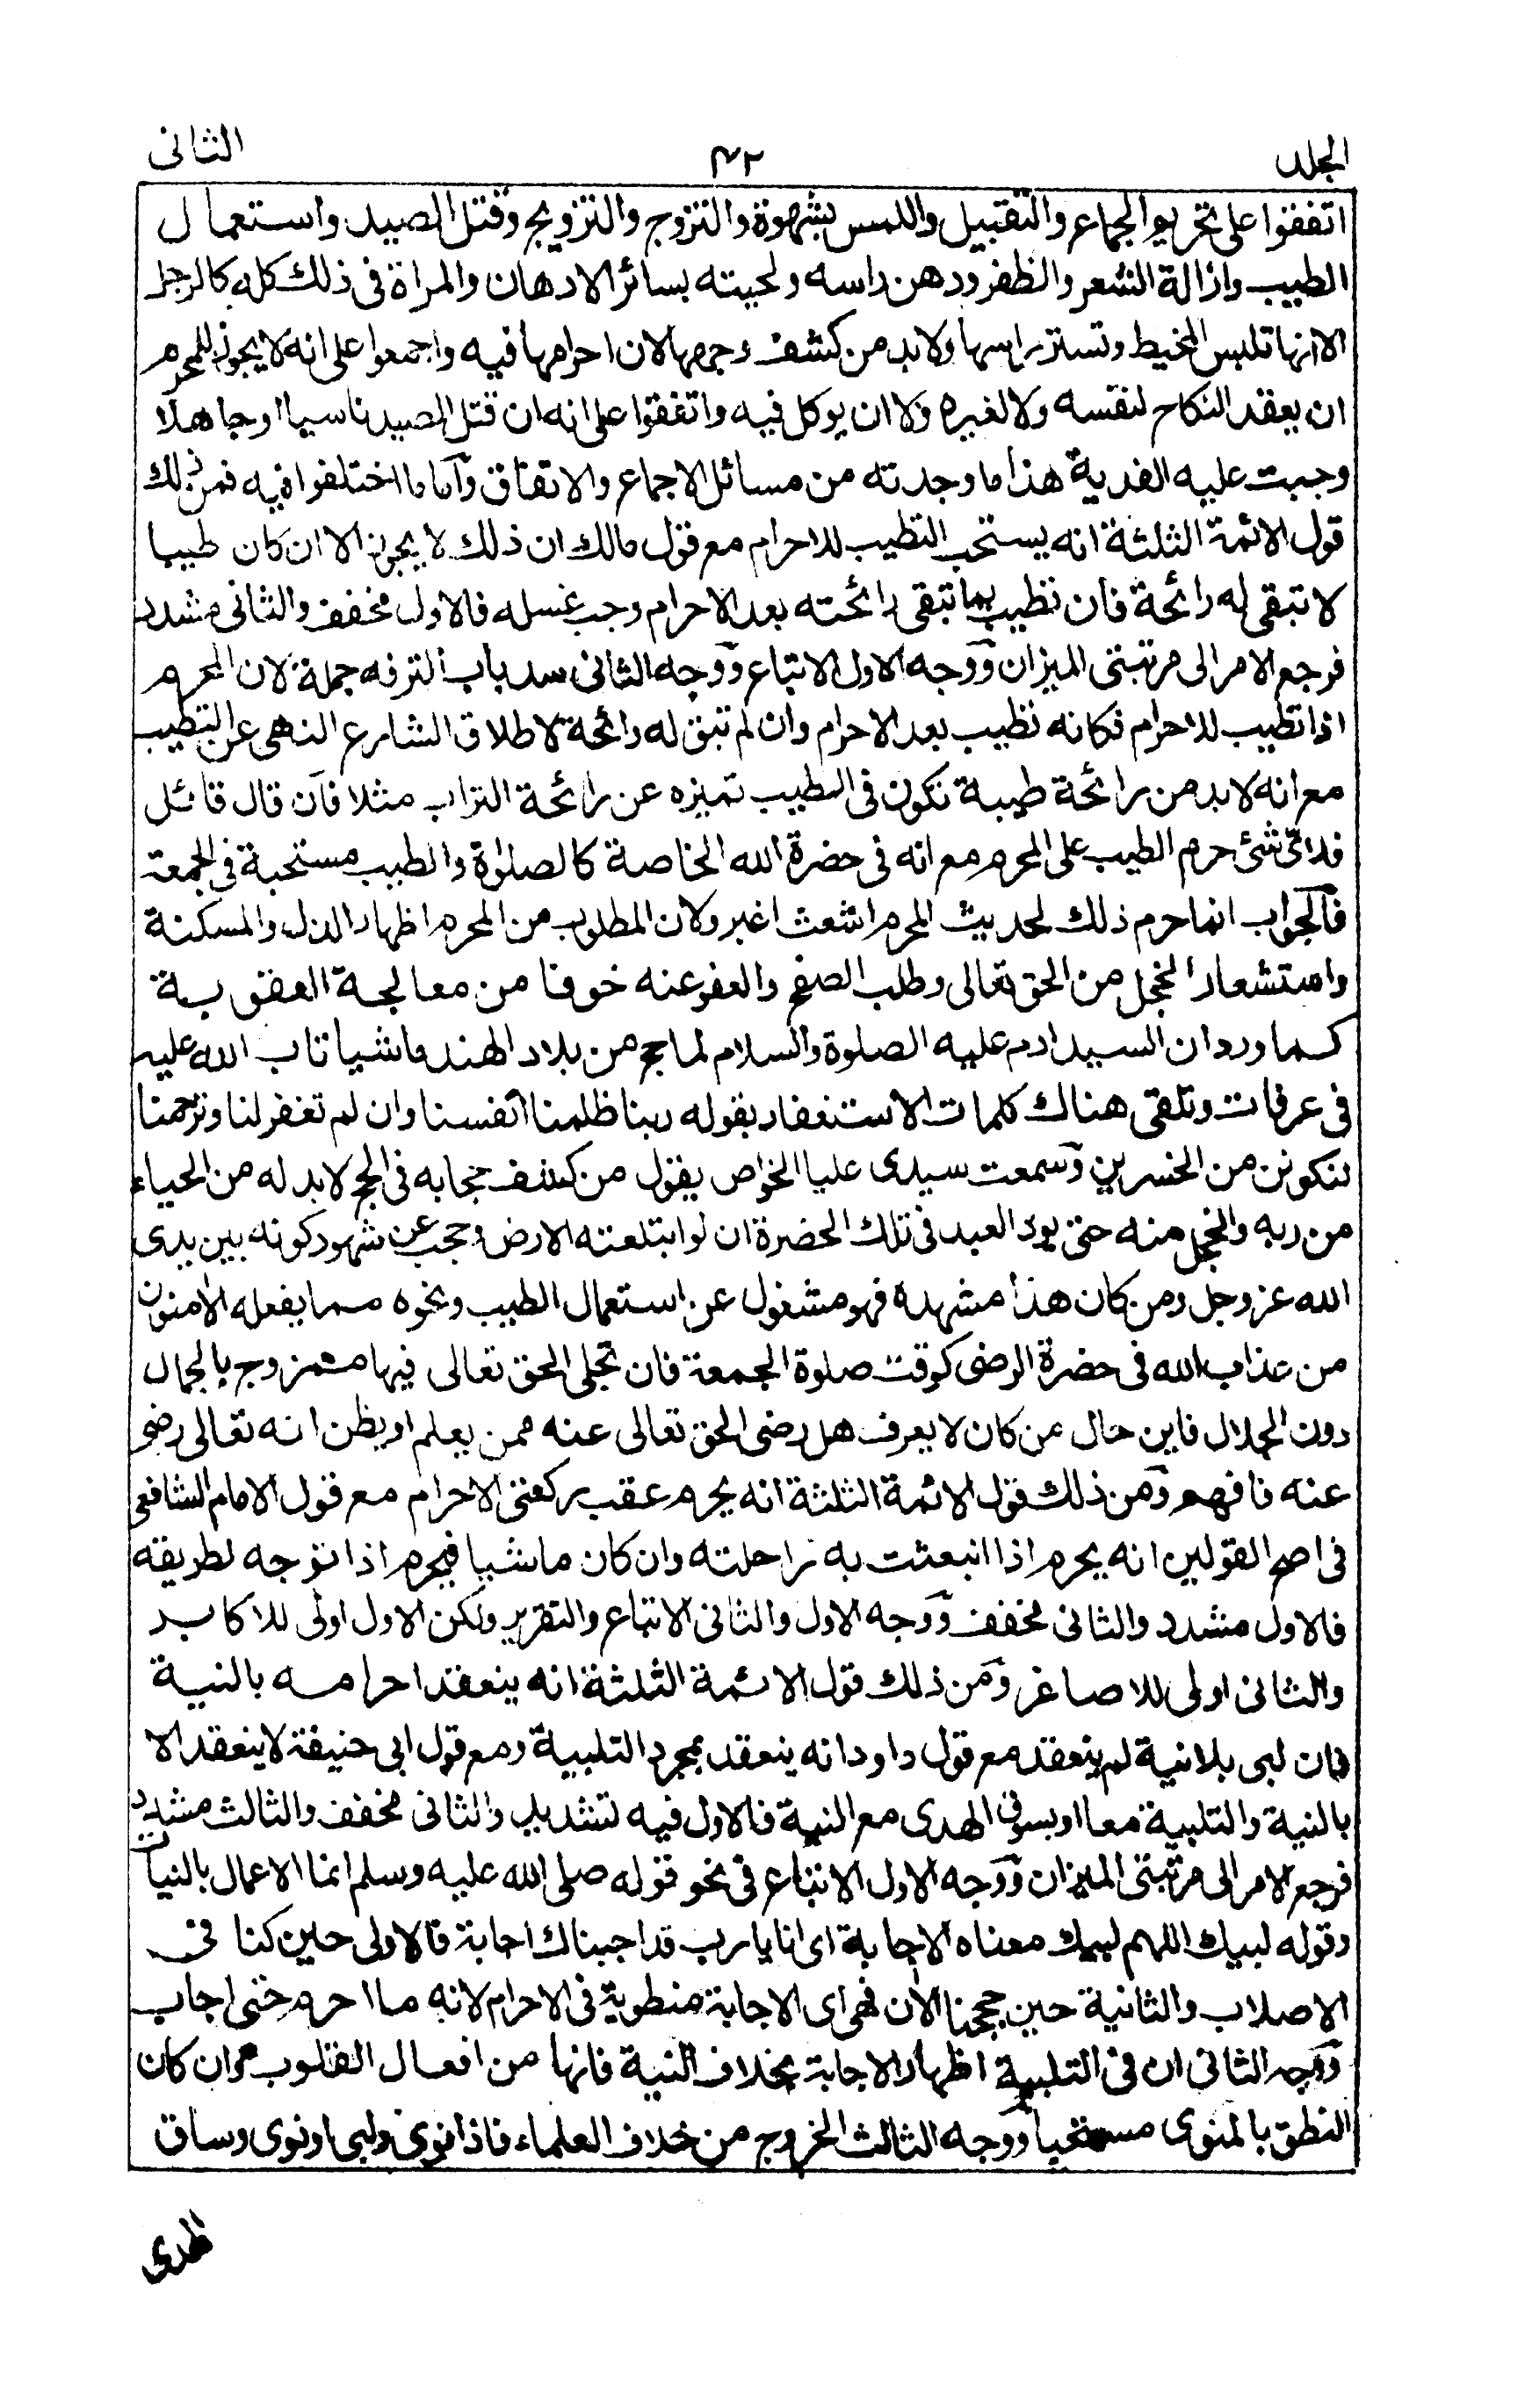 المجلد ٤٢ الثانى
اتفقوا على تحريم الجماع والتقبيل واللمس بشهوة والتزوج والتزويج وقتل الصيد واستعمال
الطيب وازالة الشعر والظفر ودهن راسه ولحيته بسائر الادهان والمراة فى ذلك كله كالرجل
الا انها تلبس المخيط وتستر راسها ولابد من كشف وجهها لان احرامها فيه واجمعوا على انه لا يجوز للمحرم
ان يعقد النكاح لنفسه ولا لغيره ولا ان يوكل فيه واتفقوا على انه ان قتل الصيد ناسيا او جاهلا
وجبت عليه الفدية هذا ما وجدته من مسائل الاجماع والاتفاق وآما ما اختلفوا فيه فمن ذلك
قول الائمة الثلثة انه يستحب التطيب للاحرام مع قول مالك ان ذلك لا يجوز الا ان كان طيبا
لا تبقى له رائحة فان تطيب بما تبقى رائحته بعد الاحرام وجب غسله فالاول مخفف والثانى مشدد
فرجع الامر الى مرتبتى الميزان وٓوجه الاول الاتباع وٓوجه الثانى سد باب الترفه جملة لان المحرم
اذا تطيب للاحرام فكانه تطيب بعد الاحرام وان لم تبق له رائحة لاطلاق الشارع النهى عن التطيب
مع انه لابد من رائحة طيبة تكون فى الطيب تميزه عن رائحة التراب مثلا فآن قال قائل
فلاىّ شئ حرم الطيب على المحرم مع انه فى حضرة الله الخاصة كالصلوٰة والطيب مستحبة فى الجمعة
فآلجواب انما حرم ذلك لحديث المحرم اشعث اغبر ولان المطلوب من المحرم اظهار الذل والمسكنة
واستشعار الخجل من الحق تعالى وطلب الصفح والعفو عنه خوفا من معالجة العقوبة
كما ورد ان السيد ادم عليه الصلوة والسلام لما حج من بلاد الهند ماشيا تاب الله عليه
فى عرفات وتلقى هناك كلمات الاستغفار بقوله ربنا ظلمنا انفسنا وان لم تغفر لنا وترحمنا
لنكونن من الخسرين وٓسمعت سيدى عليا الخواص يقول من كشف حجابه فى الحج لابد له من الحياء
من ربه والخجل منه حتى يود العبد فى تلك الحضرة ان لو ابتلعته الارض وحجب عن شهود كونه بين يدى
الله عز وجل ومن كان هذا مشهده فهو مشغول عن استعمال الطيب ونحوه مما يفعله الاٰمنون
من عذاب الله فى حضرة الرضى كوقت صلوة الجمعة فان تجلى الحق تعالى فيها ممزوج بالجمال
دون الجلال فاين حال من كان لا يعرف هل رضى الحق تعالى عنه ممن يعلم او يظن انه تعالى رضى
عنه فافهم وٓمن ذلك قول الائمة الثلثة انه يحرم عقب ركعتى الاحرام مع قول الامام الشافعى
فى اصح القولين انه يحرم اذا انبعثت به راحلته وان كان ماشيا فيحرم اذا توجه لطريقه
فالاول مشدد والثانى مخفف وٓوجه الاول والثانى الاتباع والتقرير ولكن الاول اولى للاكابر
والثانى اولى للاصاغر وٓمن ذلك قول الائمة الثلثة انه ينعقد احرامه بالنية
فان لبى بلا نية لم ينعقد مع قول داود انه ينعقد بمجرد التلبية ومع قول ابى حنيفة لا ينعقد الا
بالنية والتلبية معا او بسوق الهدى مع النية فالاول فيه تشديد والثانى مخفف والثالث مشدد
فرجع الامر الى مرتبتى الميزان وٓوجه الاول الاتباع فى نحو قوله صلى الله عليه وسلم انما الاعمال بالنيات
وقوله لبيك اللهم لبيك معناه الاجابة اى انا يا رب قد اجبناك اجابة فالاولى حين كنا فى
الاصلاب والثانية حين حججنا الاٰن فهى اى الاجابة منطوية فى الاحرام لانه ما احرم حتى اجاب
وٓوجه الثانى ان فى التلبية اظهار الاجابة بخلاف النية فانها من افعال القلوب وان كان
النطق بالمنوى مستحبا وٓوجه الثالث الخروج من خلاف العلماء فاذا نوى ولبى او نوى وساق
الهدى